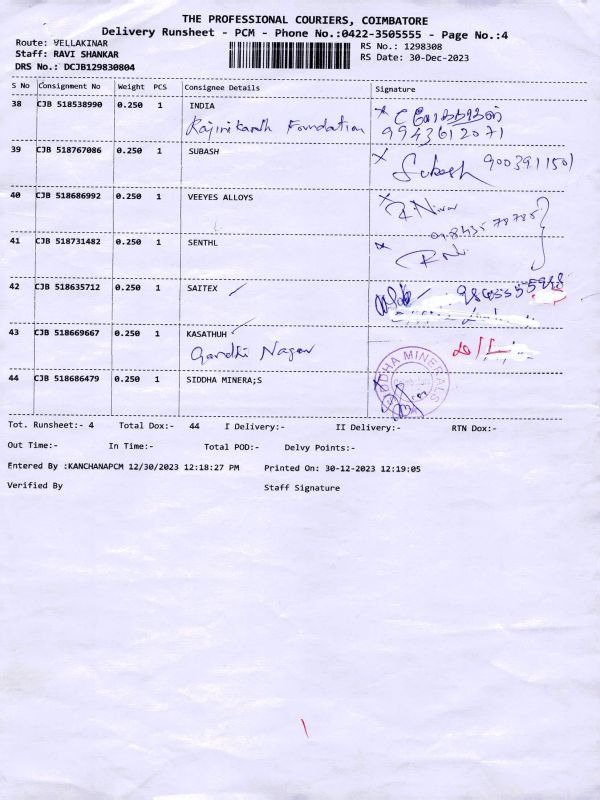 THE PROFESSIONAL COURIERS, COIMBATORE
Delivery Runsheet - PCM - Phone No.:0422-3505555 - Page No.:4
Route: VELLAKINAR
Staff: RAVI SHANKAR
DRS No.: DCJB129830804
RS No.: 1298308
RS Date: 30-Dec-2023
S No Consignment No Weight PCS Consignee Details Signature
38 CJB 518538990 0.250 1 INDIA
Rajinikanth Foundation
9943612071
39 CJB 518767086 0.250 1 SUBASH
Subash 9003911501
40 CJB 518686992 0.250 1 VEEYES ALLOYS
41 CJB 518731482 0.250 1 SENTHL
42 CJB 518635712 0.250 1 SAITEX
43 CJB 518669667 0.250 1 KASATHUH
Gandhi Nagar
44 CJB 518686479 0.250 1 SIDDHA MINERA;S
SIDDHA MINERALS
Tot. Runsheet:- 4 Total Dox:- 44 I Delivery:- II Delivery:- RTN Dox:-
Out Time:- In Time:- Total POD:- Delvy Points:-
Entered By :KANCHANAPCM 12/30/2023 12:18:27 PM Printed On: 30-12-2023 12:19:05
Verified By Staff Signature